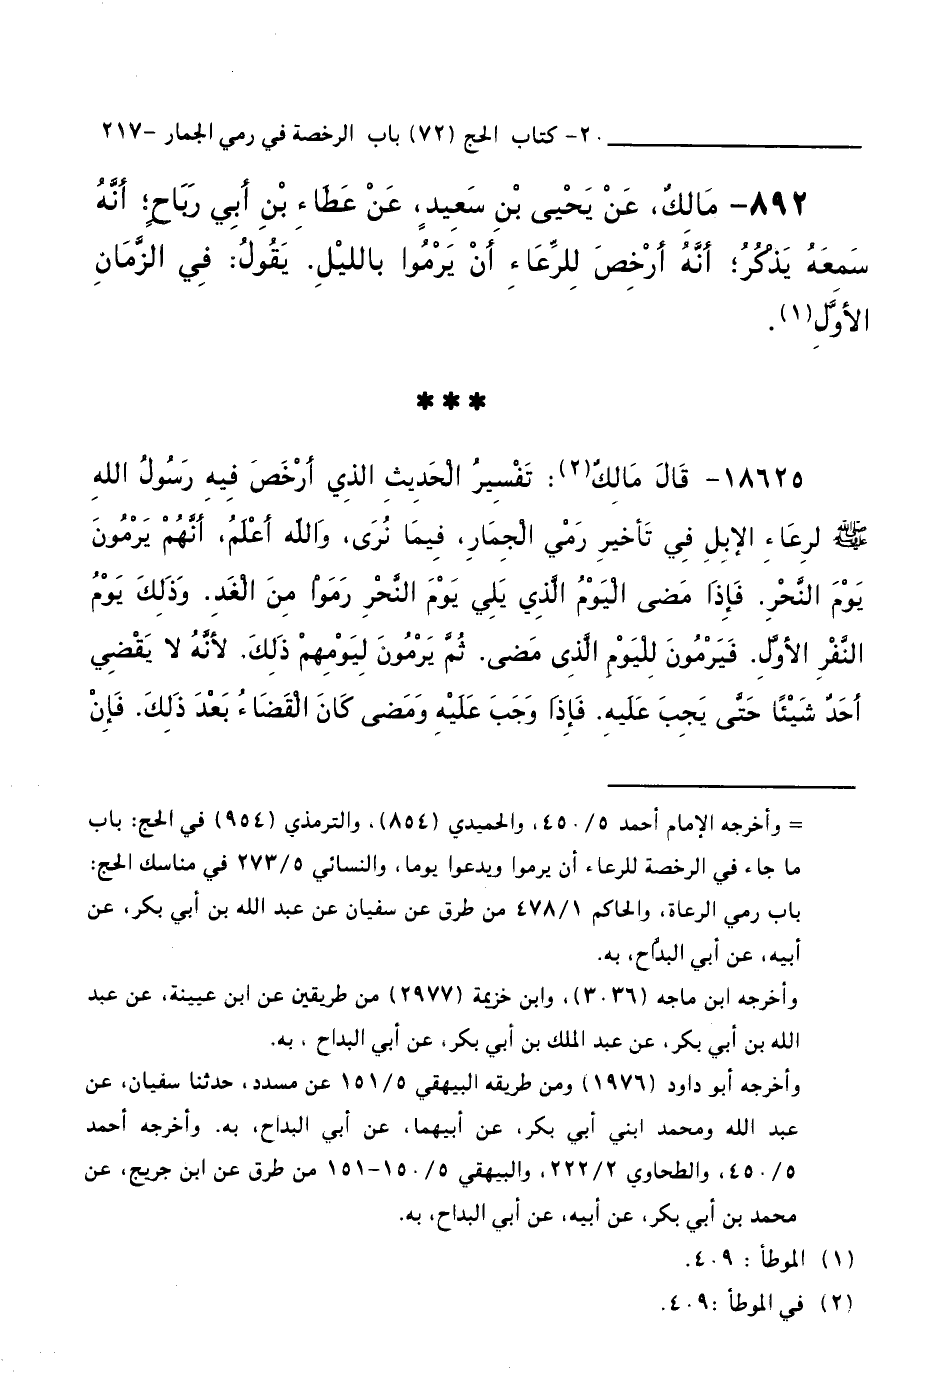 ٢٠- كتاب الحج (٧٢) باب الرخصة في رمي الجمار -٢١٧
٨٩٢- مَالِكٌ، عَنْ يَحْيَى بْنِ سَعِيدٍ، عَنْ عَطَاءِ بْنِ أَبِي رَبَاحٍ؛ أَنَّهُ
سَمِعَهُ يَذْكُرُ؛ أَنَّهُ أَرْخَصَ لِلرِّعَاءِ أَنْ يَرْمُوا بِالليْلِ. يَقُولُ: فِي الزَّمَانِ
الأوَّلِ(١).
* * *
١٨٦٢٥- قَالَ مَالكٌ(٢): تَفْسِيرُ الْحَدِيثِ الذي أَرْخَصَ فِيهِ رَسُولُ اللهِ
ﷺ لرِعَاءِ الإبلِ فِي تَأخيرِ رَمْيِ الْجِمَارِ، فِيمَا نُرَى، وَالله أَعْلَمُ، أَنَّهُمْ يَرْمُونَ
يَوْمَ النَّحْرِ. فَإذَا مَضى الْيَوْمُ الَّذِي يَلِي يَوْمَ النَّحْرِ رَمَوْا مِنَ الْغَدِ. وَذَلِكَ يَوْمُ
النَّفْرِ الأوَّلِ. فَيَرْمُونَ لِلْيَوْمِ الَّذِى مَضى. ثُمَّ يَرْمُونَ لِيَوْمِهِمْ ذَلِكَ. لأنَّهُ لا يَقْضِي
أَحَدٌ شَيْئًا حَتَّى يَجِبَ عَلَيهِ. فَإِذَا وَجَبَ عَلَيْهِ وَمَضى كَانَ الْقَضَاءُ بَعْدَ ذَلِكَ. فَإِنْ
= وأخرجه الإمام أحمد ٤٥٠/٥، والحميدي (٨٥٤)، والترمذي (٩٥٤) في الحج: باب
ما جاء في الرخصة للرعاء أن يرموا ويدعوا يوما، والنسائي ٢٧٣/٥ في مناسك الحج:
باب رمي الرعاة، والحاكم ٤٧٨/١ من طرق عن سفيان عن عبد الله بن أبي بكر، عن
أبيه، عن أبي البدَّاح، به.
وأخرجه ابن ماجه (٣٠٣٦)، وابن خزيمة (٢٩٧٧) من طريقين عن ابن عيينة، عن عبد
الله بن أبي بكر، عن عبد الملك بن أبي بكر، عن أبي البداح ، به.
وأخرجه أبو داود (١٩٧٦) ومن طريقه البيهقي ١٥١/٥ عن مسدد، حدثنا سفيان، عن
عبد الله ومحمد ابني أبي بكر، عن أبيهما، عن أبي البداح، به. وأخرجه أحمد
٤٥٠/٥، والطحاوي ٢٢٢/٢، والبيهقي ١٥٠/٥-١٥١ من طرق عن ابن جريج، عن
محمد بن أبي بكر، عن أبيه، عن أبي البداح، به.
(١) الموطأ : ٤٠٩.
(٢) في الموطأ :٤٠٩.